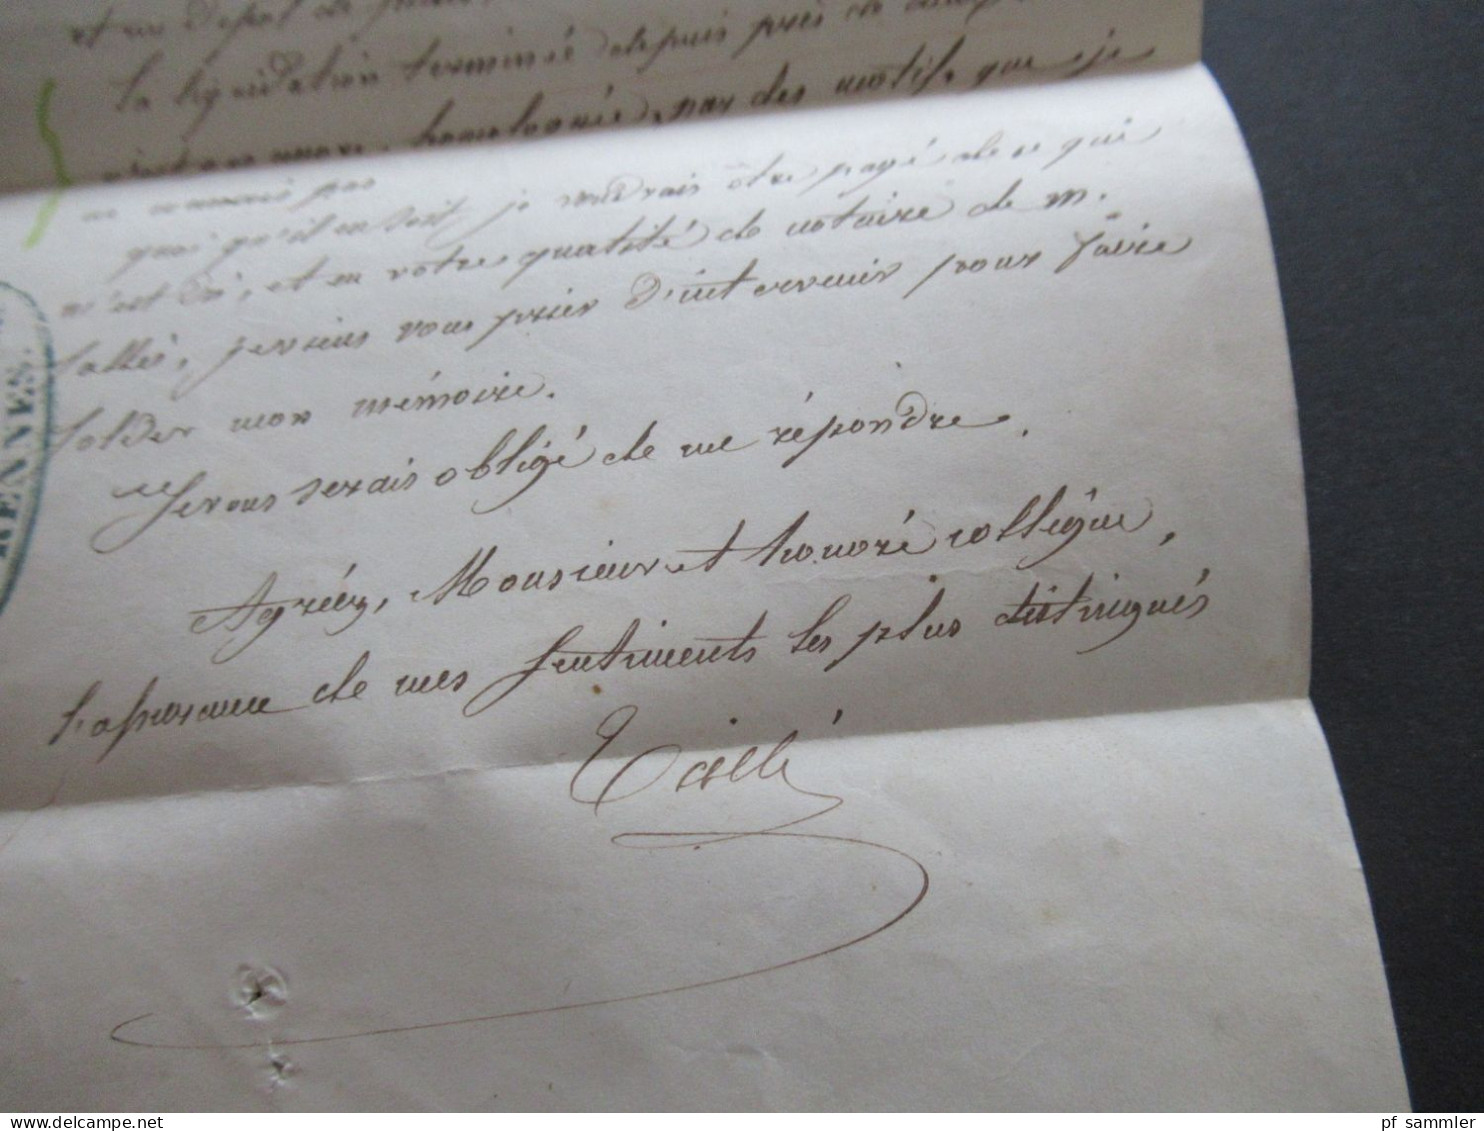 et un dépôt de
la liquidation terminée depuis près de
homologuée, par des motifs que je
ne connais pas
quoi qu'il en soit, je voudrais être payé de ce qui
m'est dû, et en votre qualité de notaire de M.
Sallé, je viens vous prier d'intervenir pour faire
solder mon mémoire.
Je vous serais obligé de me répondre.
Agréez, Monsieur et honoré collègue,
l'assurance de mes sentiments les plus distingués
RENNES.
delcampe.net
pf_sammler